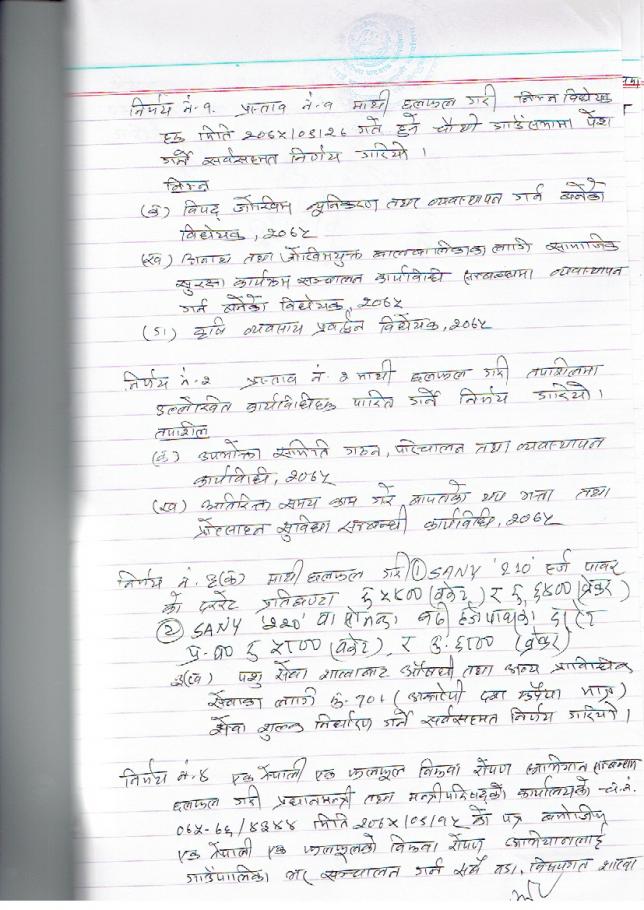 निर्णय नं. १. प्रस्ताव नं. १ माथी छलफल गरी निम्न विधेयक
हरु मिति २०७५/०३/२६ गते हुने चौथो गाउँसभामा पेश
गर्ने सर्वसहमत निर्णय गरियो ।
निम्न
(क) विपद् जोखिम न्यूनिकरण तथा व्यवस्थापन गर्न बनेको
विधेयक, २०७५
(ख) अनाथ तथा जोखिमयुक्त बालबालिकाका लागी सामाजिक
सुरक्षा कार्यक्रम सञ्चालन कार्यविधी सम्बन्धमा व्यवस्थापन
गर्न बनेको विधेयक, २०७५
(ग) कृषि व्यवसाय प्रवर्द्धन विधेयक, २०७५
निर्णय नं. २ प्रस्ताव नं. २ माथी छलफल गरी तपशिलमा
उल्लेखित कार्यविधीहरु पारित गर्ने निर्णय गरियो ।
तपशिल
(क) उपभोक्ता समिति गठन, परिचालन तथा व्यवस्थापन
कार्यविधी, २०७५
(ख) अतिरिक्त समय काम गरे बापतको थप भत्ता तथा
प्रोत्साहन सुविधा सम्बन्धी कार्यविधि, २०७५
निर्णय नं. ३(क) माथी छलफल गरी ① SANY '210' हर्ष पावर
को दररेट प्रतिघण्टा (बकेट) र (ब्रेकर)
② SANY '220' वा सोभन्दा बढी
(बकेट), र (ब्रेकर)
३(ख) पशु सेवा शाखाबाट औषधी तथा अन्य प्राविधिक
सेवाका लागी रु. १०। मात्र)
सेवा शुल्क निर्धारण गर्ने सर्वसहमत निर्णय गरियो ।
निर्णय नं. ४ एक नेपाली एक फलफूल विरुवा रोपण अभियान सम्बन्धमा
छलफल गरी प्रधानमन्त्री तथा मन्त्रीपरिषद्को कार्यालयको च.नं.
मिति २०७५/०३/१५ को पत्र बमोजिम
एक नेपाली एक फलफूलको विरुवा रोपण अभियानलाई
गाउँपालिका भर सञ्चालन गर्न सबै वडा, विषयगत शाखा